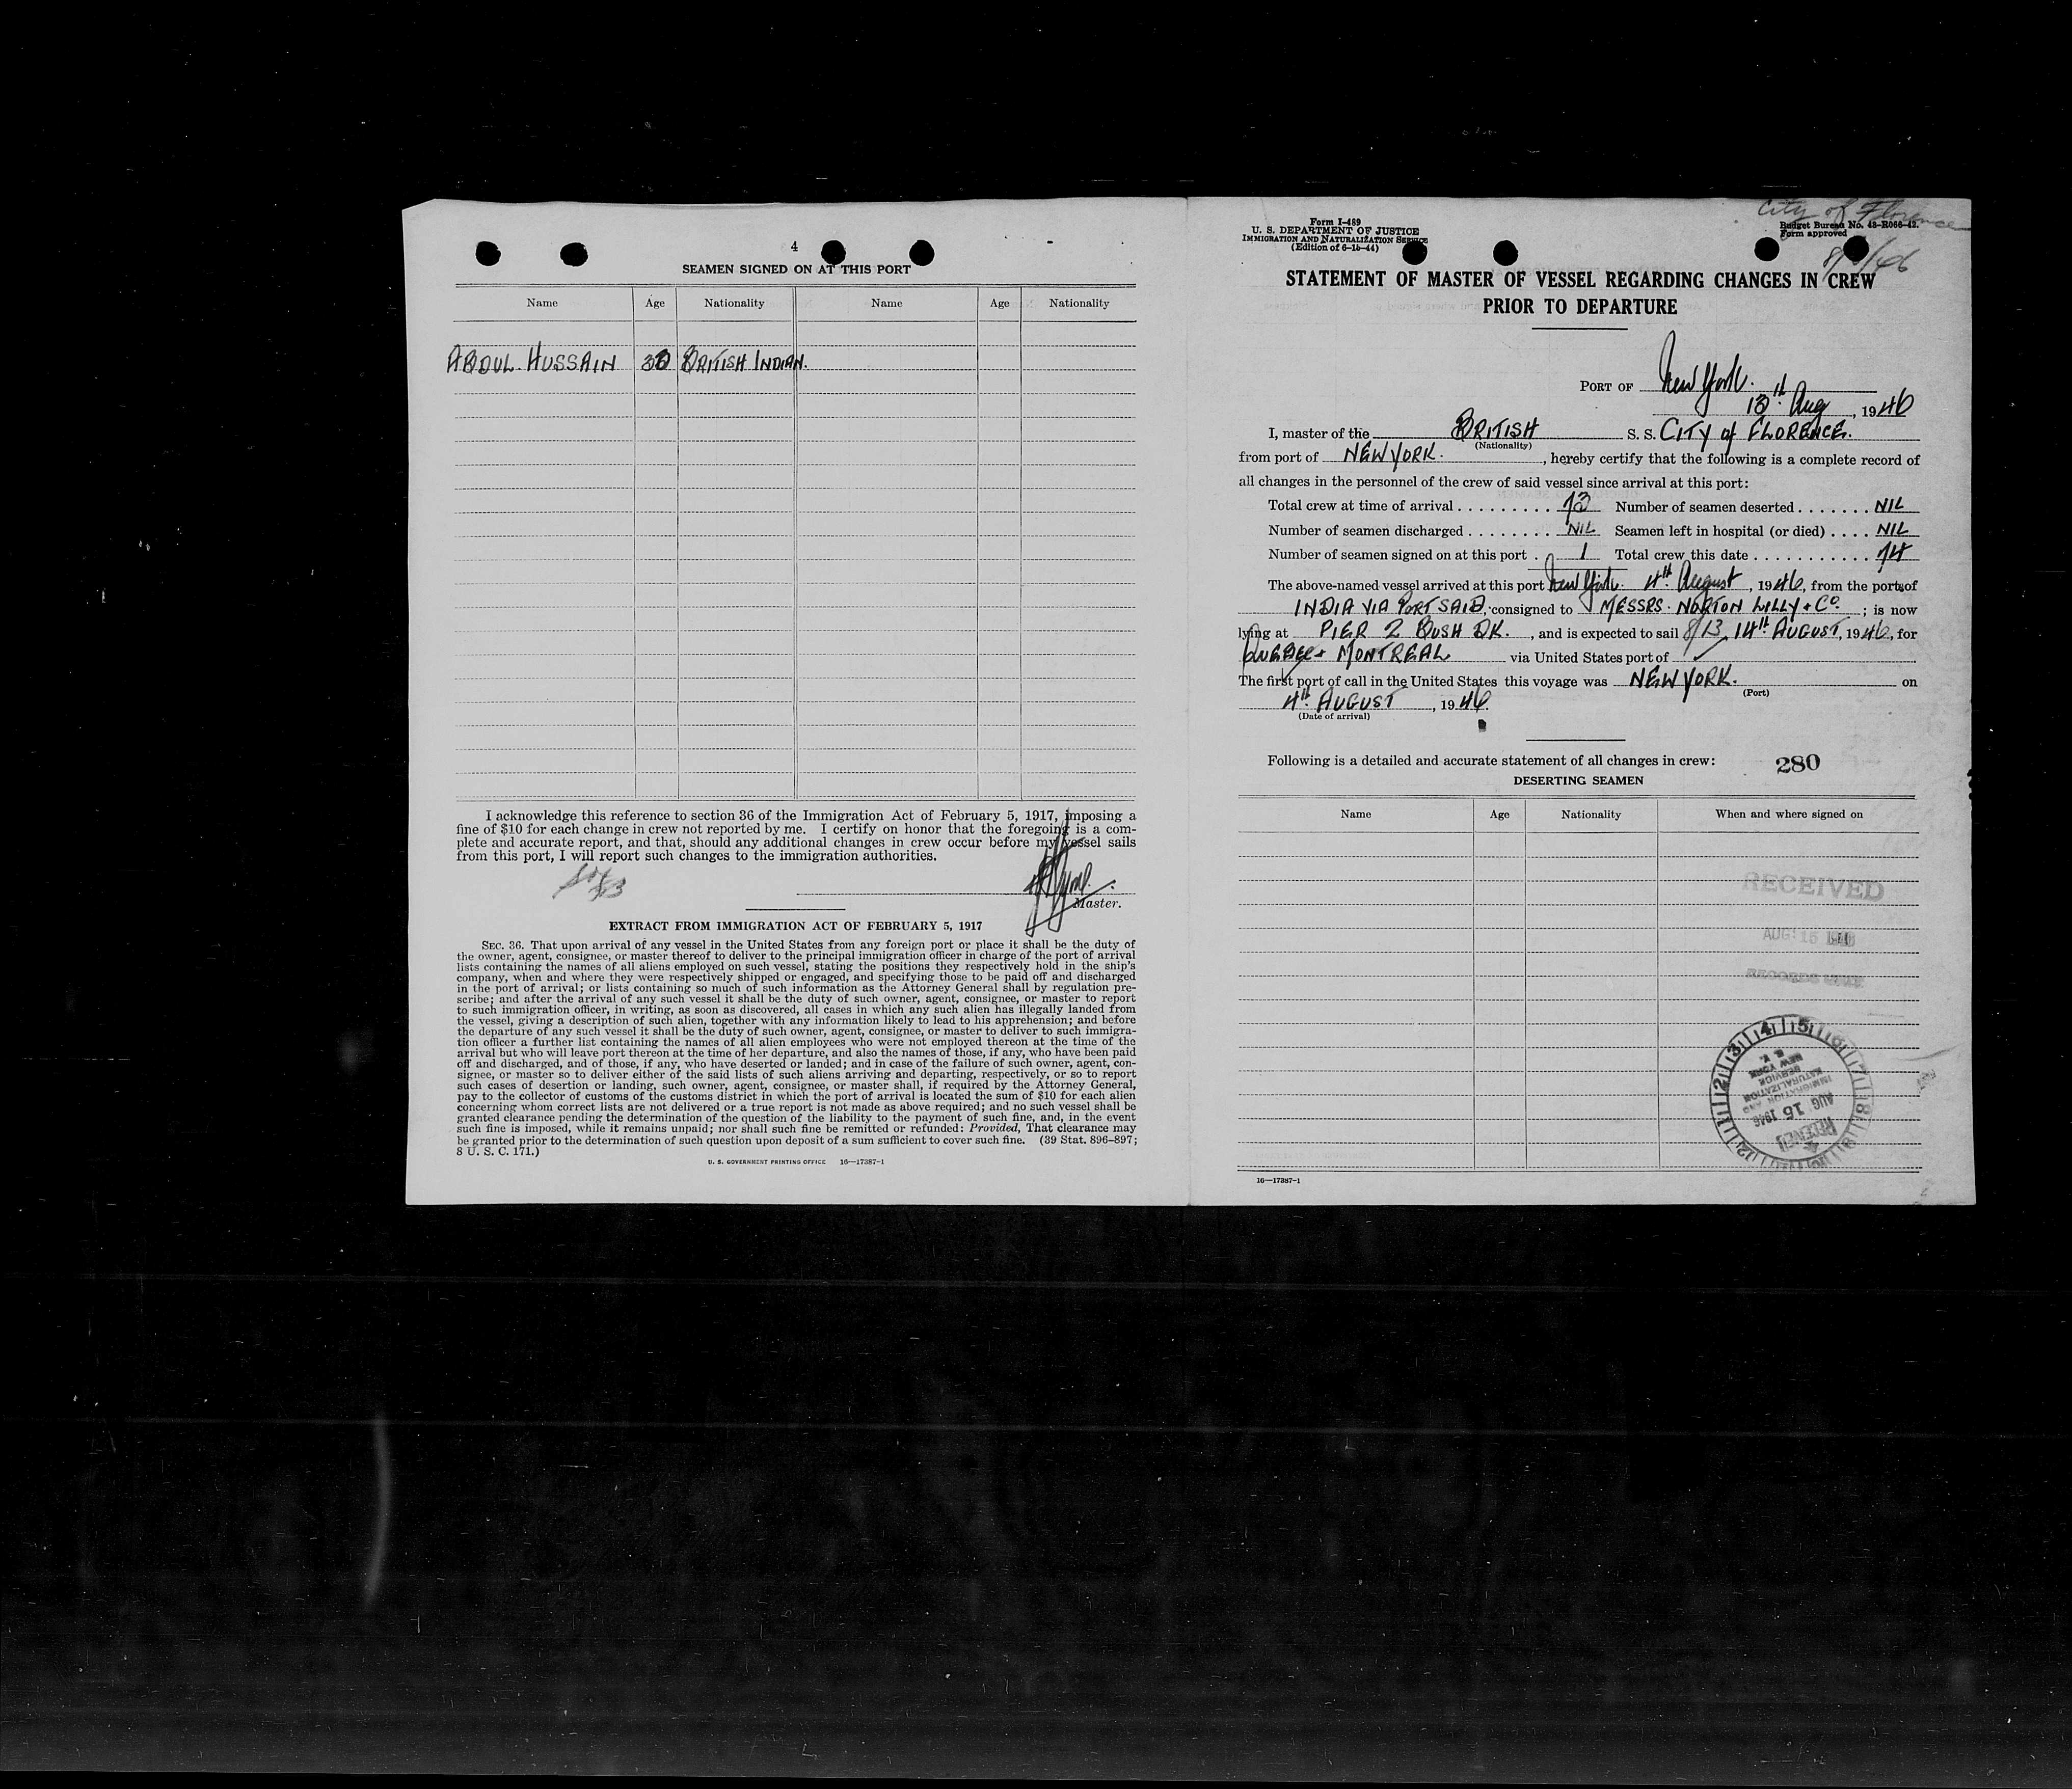 4
SEAMEN SIGNED ON AT THIS PORT
Name Age Nationality Name Age Nationality
ABDUL HUSSAIN BRITISH INDIAN.
I acknowledge this reference to section 36 of the Immigration Act of February 5, 1917, imposing a
fine of $10 for each change in crew not reported by me. I certify on honor that the foregoing is a com-
plete and accurate report, and that, should any additional changes in crew occur before my vessel sails
from this port, I will report such changes to the immigration authorities.
Master.
EXTRACT FROM IMMIGRATION ACT OF FEBRUARY 5, 1917
SEC. 36. That upon arrival of any vessel in the United States from any foreign port or place it shall be the duty of
the owner, agent, consignee, or master thereof to deliver to the principal immigration officer in charge of the port of arrival
lists containing the names of all aliens employed on such vessel, stating the positions they respectively hold in the ship's
company, when and where they were respectively shipped or engaged, and specifying those to be paid off and discharged
in the port of arrival; or lists containing so much of such information as the Attorney General shall by regulation pre-
scribe; and after the arrival of any such vessel it shall be the duty of such owner, agent, consignee, or master to report
to such immigration officer, in writing, as soon as discovered, all cases in which any such alien has illegally landed from
the vessel, giving a description of such alien, together with any information likely to lead to his apprehension; and before
the departure of any such vessel it shall be the duty of such owner, agent, consignee, or master to deliver to such immigra-
tion officer a further list containing the names of all alien employees who were not employed thereon at the time of the
arrival but who will leave port thereon at the time of her departure, and also the names of those, if any, who have been paid
off and discharged, and of those, if any, who have deserted or landed; and in case of the failure of such owner, agent, con-
signee, or master so to deliver either of the said lists of such aliens arriving and departing, respectively, or so to report
such cases of desertion or landing, such owner, agent, consignee, or master shall, if required by the Attorney General,
pay to the collector of customs of the customs district in which the port of arrival is located the sum of $10 for each alien
concerning whom correct lists are not delivered or a true report is not made as above required; and no such vessel shall be
granted clearance pending the determination of the question of the liability to the payment of such fine, and, in the event
such fine is imposed, while it remains unpaid; nor shall such fine be remitted or refunded: Provided, That clearance may
be granted prior to the determination of such question upon deposit of a sum sufficient to cover such fine. (39 Stat. 896–897;
8 U. S. C. 171.)
U. S. GOVERNMENT PRINTING OFFICE 16—17387-1
City of Florence
Form I-489
U. S. DEPARTMENT OF JUSTICE
IMMIGRATION AND NATURALIZATION SERVICE
(Edition of 6-15-44)
Budget Bureau No. 43-R066-42.
Form approved
STATEMENT OF MASTER OF VESSEL REGARDING CHANGES IN CREW
PRIOR TO DEPARTURE
PORT OF New York.
13th Aug, 1946
I, master of the BRITISH S. S. CITY of FLORENCE.
(Nationality)
from port of NEW YORK., hereby certify that the following is a complete record of
all changes in the personnel of the crew of said vessel since arrival at this port:
Total crew at time of arrival . . . . . . . . . 73 Number of seamen deserted . . . . . . . NIL
Number of seamen discharged . . . . . . . . NIL Seamen left in hospital (or died) . . . . NIL
Number of seamen signed on at this port . 1 Total crew this date . . . . . . . . . . . . 74
The above-named vessel arrived at this port New York. 4th August, 1946, from the ports of
INDIA VIA PORT SAID, consigned to MESSRS. NORTON LILLY & Co.; is now
lying at PIER 2 BUSH DK., and is expected to sail 8/13 14th AUGUST, 1946, for
QUEBEC & MONTREAL via United States port of
The first port of call in the United States this voyage was NEW YORK. on
(Port)
4th AUGUST, 1946.
(Date of arrival)
Following is a detailed and accurate statement of all changes in crew:
280
DESERTING SEAMEN
Name Age Nationality When and where signed on
RECEIVED
AUG 15
RECORDS
IMMIGRATION AND
NATURALIZATION
SERVICE
NEW YORK
N. Y.
AUG 15 1946
RECEIVED
16—17387-1